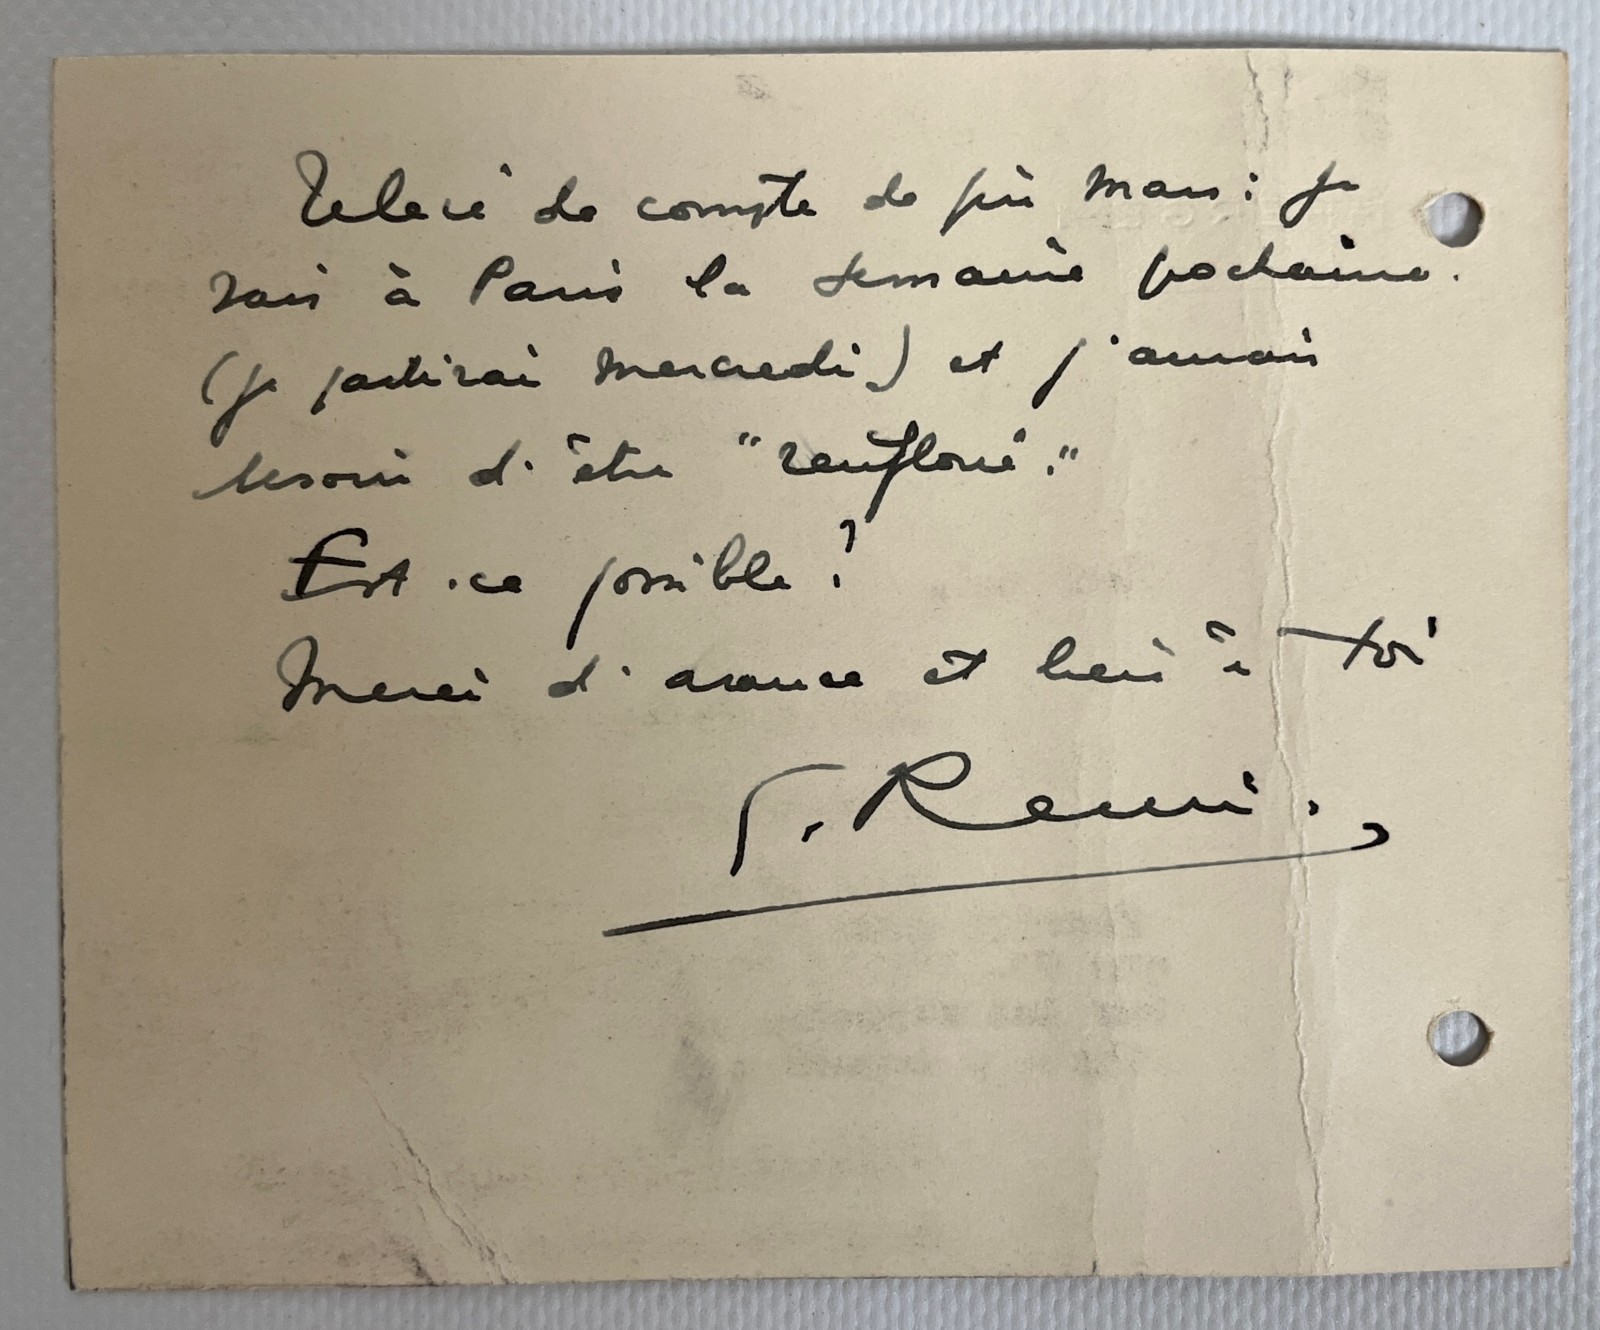 Relevé de compte de fin mars : je
vais à Paris la semaine prochaine.
(je partirai mercredi) et j'aurais
besoin d'être "renfloué."
Est-ce possible ?
Merci d'avance et bien à toi
G. Remi.